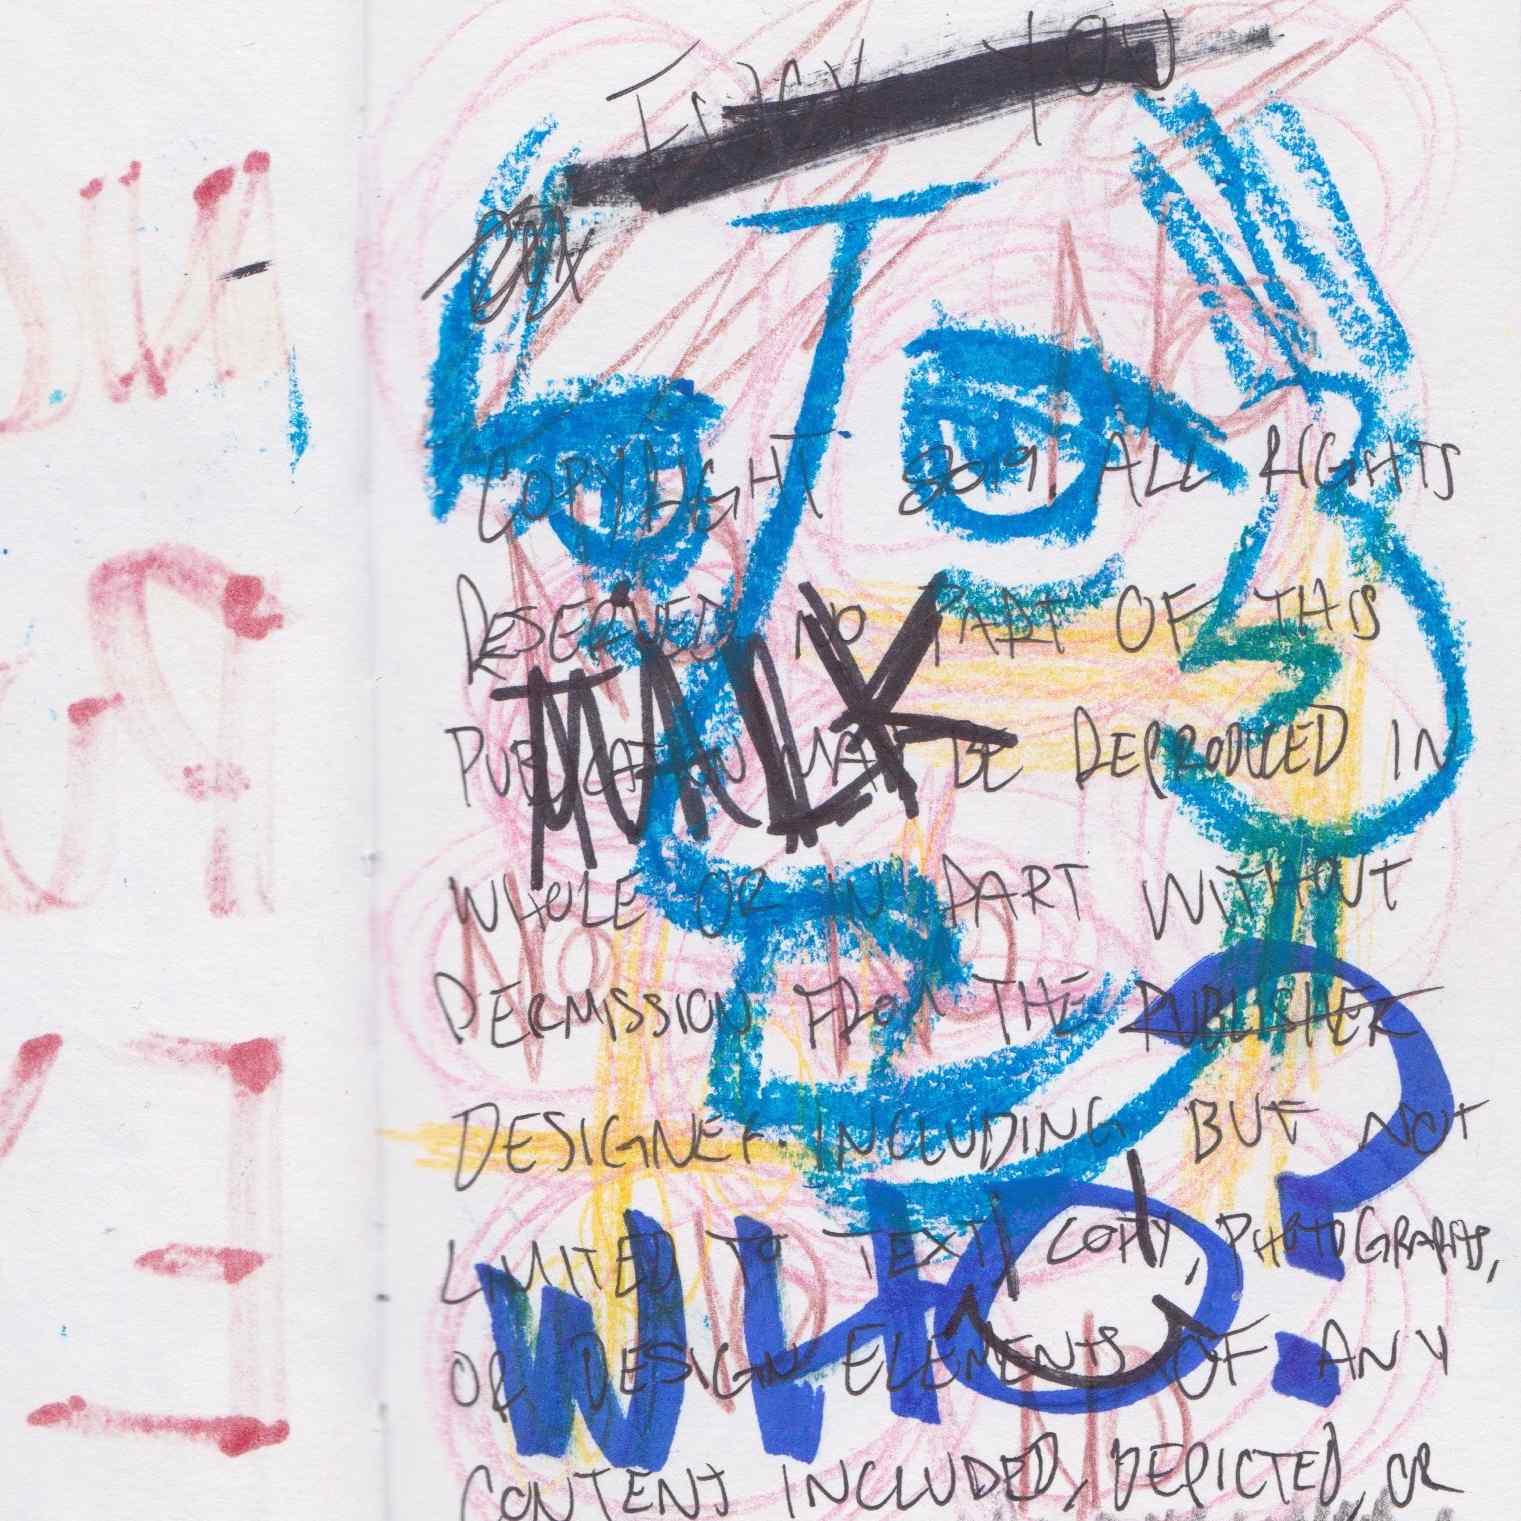 YOU
COPYRIGHT 2019. ALL RIGHTS
RESERVED NO PART OF THIS
PUBLICATION MAY BE REPRODUCED IN
WHOLE OR IN PART WITHOUT
PERMISSION FROM THE PUBLISHER
DESIGNER. INCLUDING BUT NOT
LIMITED TO TEXT, COPY, PHOTOGRAPHS,
WHO?
OR DESIGN ELEMENTS OF ANY
CONTENT INCLUDED, DEPICTED, OR